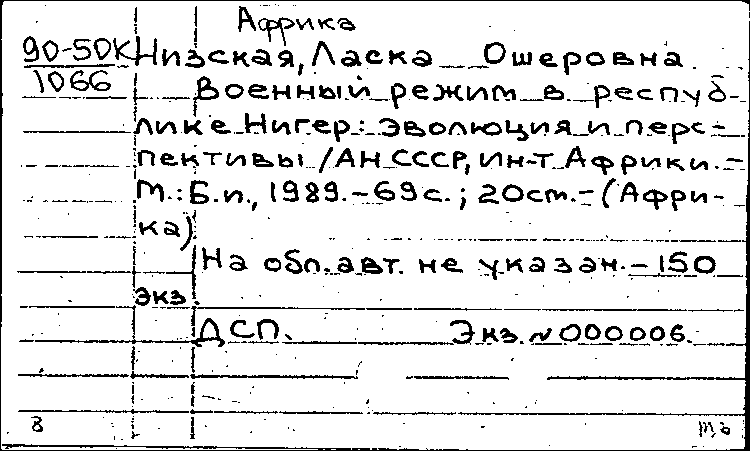 Африка
90-50К Низская, Ласка Ошеровна.
1066 Военный режим в респуб-
лике Нигер: эволюция и перс-
пективы / АН СССР, ин-т Африки. -
М.: Б.и., 1989. - 69 с.; 20 ст. - (Афри-
ка)
На обл. авт. не указан. - 150
экз.
ДСП. Экз. № 000006.
8 тъ